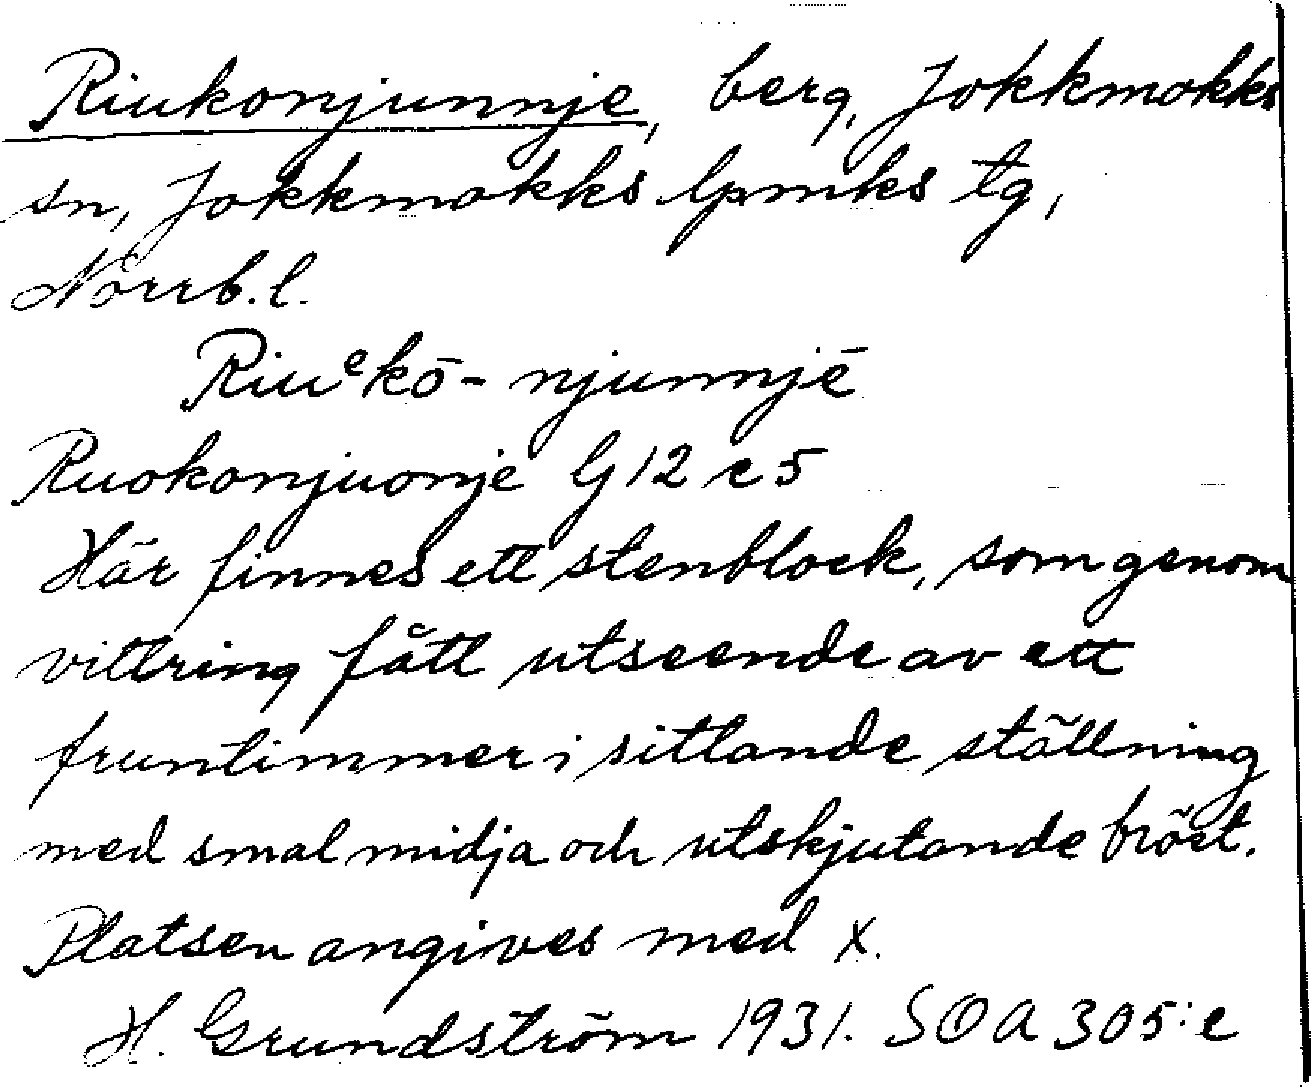 Riukonjunnje, berg, Jokkmokks
sn, Jokkmokks lpmks tg,
Norrb. l.
Riuᵉkō- njunnjē
Ruokonjuonje G 12 c 5
Här finnes ett stenblock, som genom
vittring fått utseende av ett
fruntimmer i sittande ställning
med smal midja och utskjutande bröst.
Platsen angives med x.
H. Grundström 1931. SOA 305:e